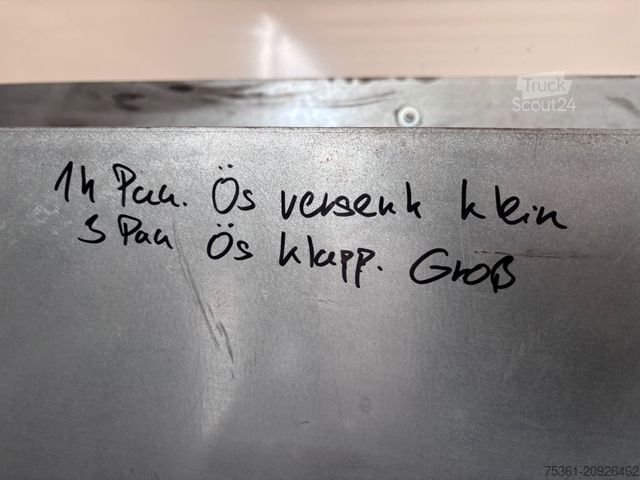 Truck
Scout24
14 Paa. Ös versenk klein
5 Paa Ös klapp. Groß
75361-20926462